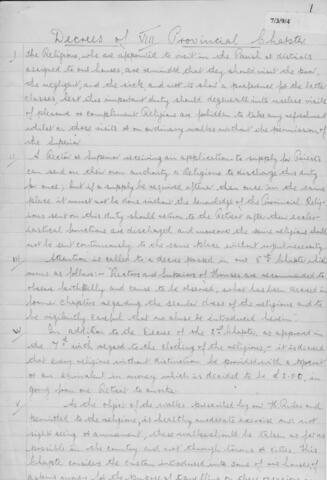 1
7/3/9/4
Decrees of VIII Provincial Chapter
I) the Religious, who are appointed to visit in the Parish or districts
assigned to our houses, are reminded that they should visit the poor,
the negligent, and the sick and not to show a preference for the better
classes, lest this important duty should degenerate into useless visits
of pleasure or compliment. Religious are forbidden to take any refreshment
whilst on those visits or on ordinary walks without the permission of
the Superior.
II) A Rector or Superior receiving an application to supply for Priests
can send on their own authority a Religious to discharge this duty
for once; but if a supply be required oftener than once in the same
place it must not be done without the knowledge of the Provincial. Relig-
ious sent on this duty should return to the Retreat after the eccles-
iastical functions are discharged and moreover the same religious should
not be sent continuously to the same place without urgent necessity
III) Attention is called to a decree passed in our 5th Chapter which
runs as follows:- "Rectors and Superiors of Houses are recommended to
observe faithfully and cause to be observed, what has been decreed in
former chapters regarding the secular dress of the religious and to
be vigilantly careful that no abuse be introduced herein."
IV) In addition to the Decree of the 2nd Chapter, as approved in
the 7th with regard to the clothing of the religious, it is decreed
that every religious without distinction be provided with a
or an equivalent in money which is decided to be £2.00, in
going from one Retreat to another.
V) As the object of the walks prescribed by our H. Rules and
permitted to the religious, is healthy moderate exercise and not
sight seeing or amusement, these walks should be taken as far as
possible in the country and not through towns or cities. This
Chapter considers the custom introduced into some of our houses of